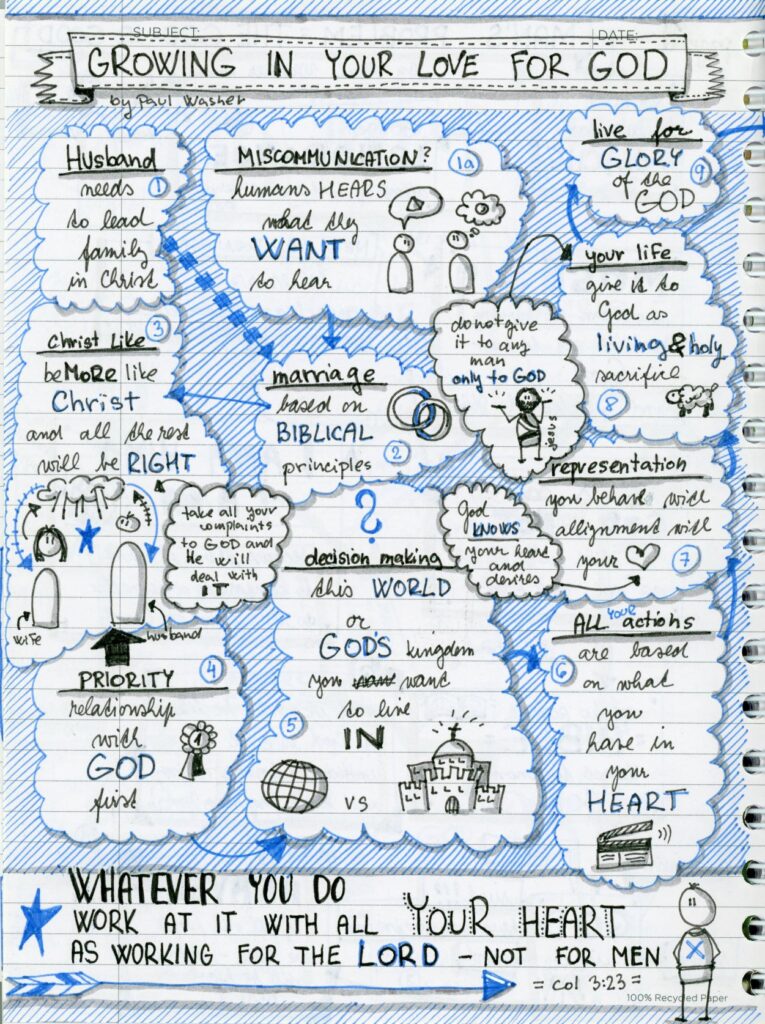 SUBJECT:
DATE:
GROWING IN YOUR LOVE FOR GOD
by Paul Washer
Husband
needs
to lead
family
in Christ
1
MISCOMMUNICATION?
1a
humans HEARS
what they
WANT
to hear
marriage
based on
BIBLICAL
principles
2
Christ Like
3
be MoRe like
Christ
and all the rest
will be RIGHT
wife
husband
take all your
complaints
to GOD and
He will
deal with
IT
PRIORITY
4
relationship
with
GOD
first
1
?
decision making
this WORLD
or
GOD'S kingdom
you want
to live
5
IN
vs
ALL YOUR actions
6
are based
on what
you
have in
your
HEART
representation
you behave will
allignment will
your
7
God
KNOWS
your heart
and
desires
your life
give it to
God as
living & holy
sacrifice
8
do not give
it to any
man
only to GOD
jesus
live for
GLORY
9
of the
GOD
WHATEVER YOU DO
WORK AT IT WITH ALL YOUR HEART
AS WORKING FOR THE LORD - NOT FOR MEN
= col 3:23 =
100% Recycled Paper